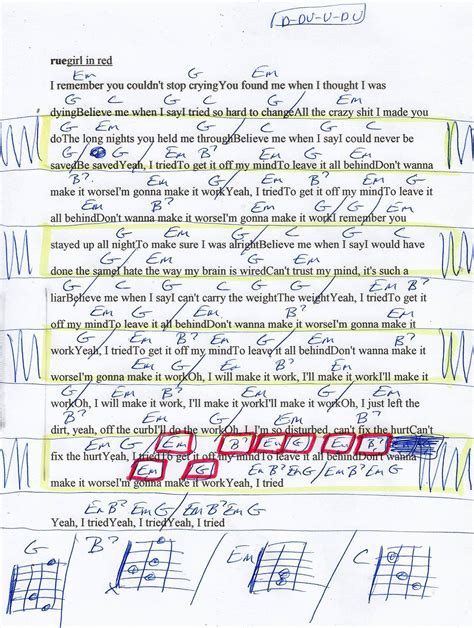 D-DU-U-DU
ruegirl in red
Em G Em
I remember you couldn't stop cryingYou found me when I thought I was
G C G C G
dyingBelieve me when I sayI tried so hard to changeAll the crazy shit I made you
G Em G C G
doThe long nights you held me throughBelieve me when I sayI could never be
G / G / Em B7 Em G
savedBe savedYeah, I triedTo get it off my mindTo leave it all behindDon't wanna
Em B? Em G / Em B?
make it worseI'm gonna make it workYeah, I triedTo get it off my mindTo leave it
Em G / Em B? Em G
all behindDon't wanna make it worseI'm gonna make it workI remember you
G C G C
stayed up all nightTo make sure I was alrightBelieve me when I sayI would have
G / Em G Em
done the sameI hate the way my brain is wiredCan't trust my mind, it's such a
G C G C G / G / Em B?
liarBelieve me when I sayI can't carry the weightThe weightYeah, I triedTo get it
Em G / Em B? Em G
off my mindTo leave it all behindDon't wanna make it worseI'm gonna make it
workYeah, I triedTo get it off my mindTo leave it all behindDon't wanna make it
worseI'm gonna make it workOh, I will make it work, I'll make it workI'll make it
workOh, I will make it work, I'll make it workI'll make it workOh, I just left the
dirt, yeah, off the curbI'll do the workOh, I, I'm so disturbed, can't fix the hurtCan't
Em G / Em B? Em G Em B?
fix the hurtYeah, I triedTo get it off my mindTo leave it all behindDon't wanna
Em G Em B? Em G / Em B? Em G
make it worseI'm gonna make it workYeah, I tried
Em B? Em G / Em B? Em G
Yeah, I triedYeah, I triedYeah, I tried
G B? Em C
X